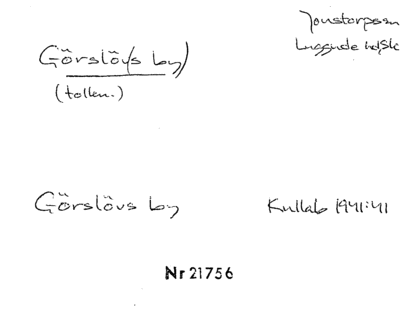 Jonstorpssn
Luggude hd, Sk
Görslöv(s by)
(tolkn.)
Görslövs by
Kullab 1941:41
Nr 21756